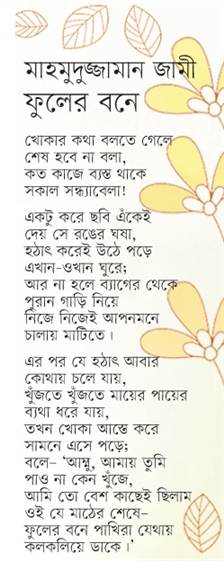 মাহমুদুজ্জামান জামী
ফুলের বনে
খোকার কথা বলতে গেলে
শেষ হবে না বলা,
কত কাজে ব্যস্ত থাকে
সকাল সন্ধ্যাবেলা!
একটু করে ছবি এঁকেই
দেয় সে রঙের ঘষা,
হঠাৎ করেই উঠে পড়ে
এখান-ওখান ঘুরে;
আর না হলে ব্যাগের থেকে
পুরান গাড়ি নিয়ে
নিজে নিজেই আপনমনে
চালায় মাটিতে।
এর পর যে হঠাৎ আবার
কোথায় চলে যায়,
খুঁজতে খুঁজতে মায়ের পায়ের
ব্যথা ধরে যায়,
তখন খোকা আস্তে করে
সামনে এসে পড়ে;
বলে– ‘আম্মু, আমায় তুমি
পাও না কেন খুঁজে,
আমি তো বেশ কাছেই ছিলাম
ওই যে মাঠের শেষে–
ফুলের বনে পাখিরা যেথায়
কলকলিয়ে ডাকে।’